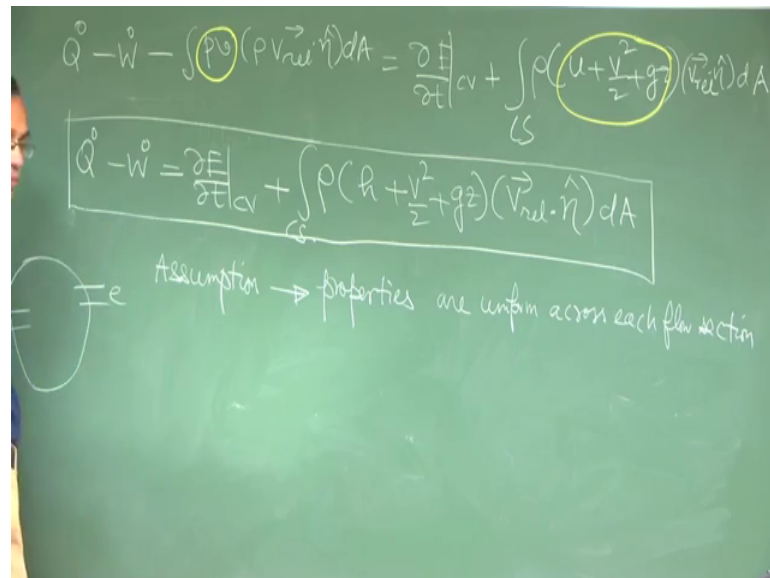 Q̇ − Ẇ − ∫ pv (ρ V⃗rel · η̂) dA = ∂E/∂t|CV + ∫CS ρ(u + V²/2 + gz)(V⃗rel · η̂) dA
Q̇ − Ẇ = ∂E/∂t|CV + ∫CS ρ(h + V²/2 + gz)(V⃗rel · η̂) dA
Assumption → properties are uniform across each flow section
e